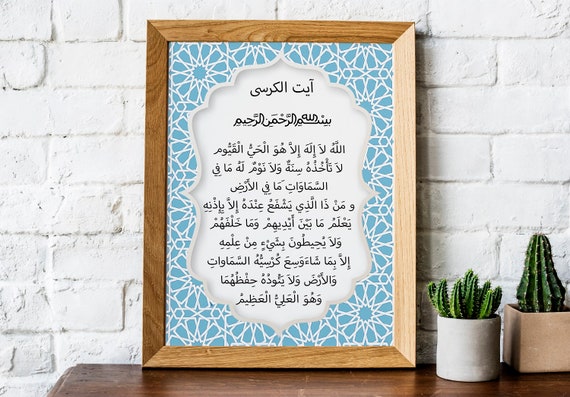 آيت الكرسى
بِسْمِ اللهِ الرَّحْمَنِ الرَّحِيمِ
اللَّهُ لاَ إِلَهَ إِلاَّ هُوَ الْحَيُّ الْقَيُّوم
لاَ تَأْخُذُهُ سِنَةٌ وَلاَ نَوْمٌ لَهُ مَا فِي
السَّمَاوَاتِ مَا فِي الأَرْضِ
و مَنْ ذَا الَّذِي يَشْفَعُ عِنْدَهُ إِلاَّ بِإِذْنِهِ
يَعْلَمُ مَا بَيْنَ أَيْدِيهِمْ وَمَا خَلْفَهُمْ
وَلاَ يُحِيطُونَ بِشَيْءٍ مِنْ عِلْمِهِ
إِلاَّ بِمَا شَاءَ وَسِعَ كُرْسِيُّهُ السَّمَاوَاتِ
وَالأَرْضَ وَلاَ يَئُودُهُ حِفْظُهُمَا
وَهُوَ الْعَلِيُّ الْعَظِيمُ